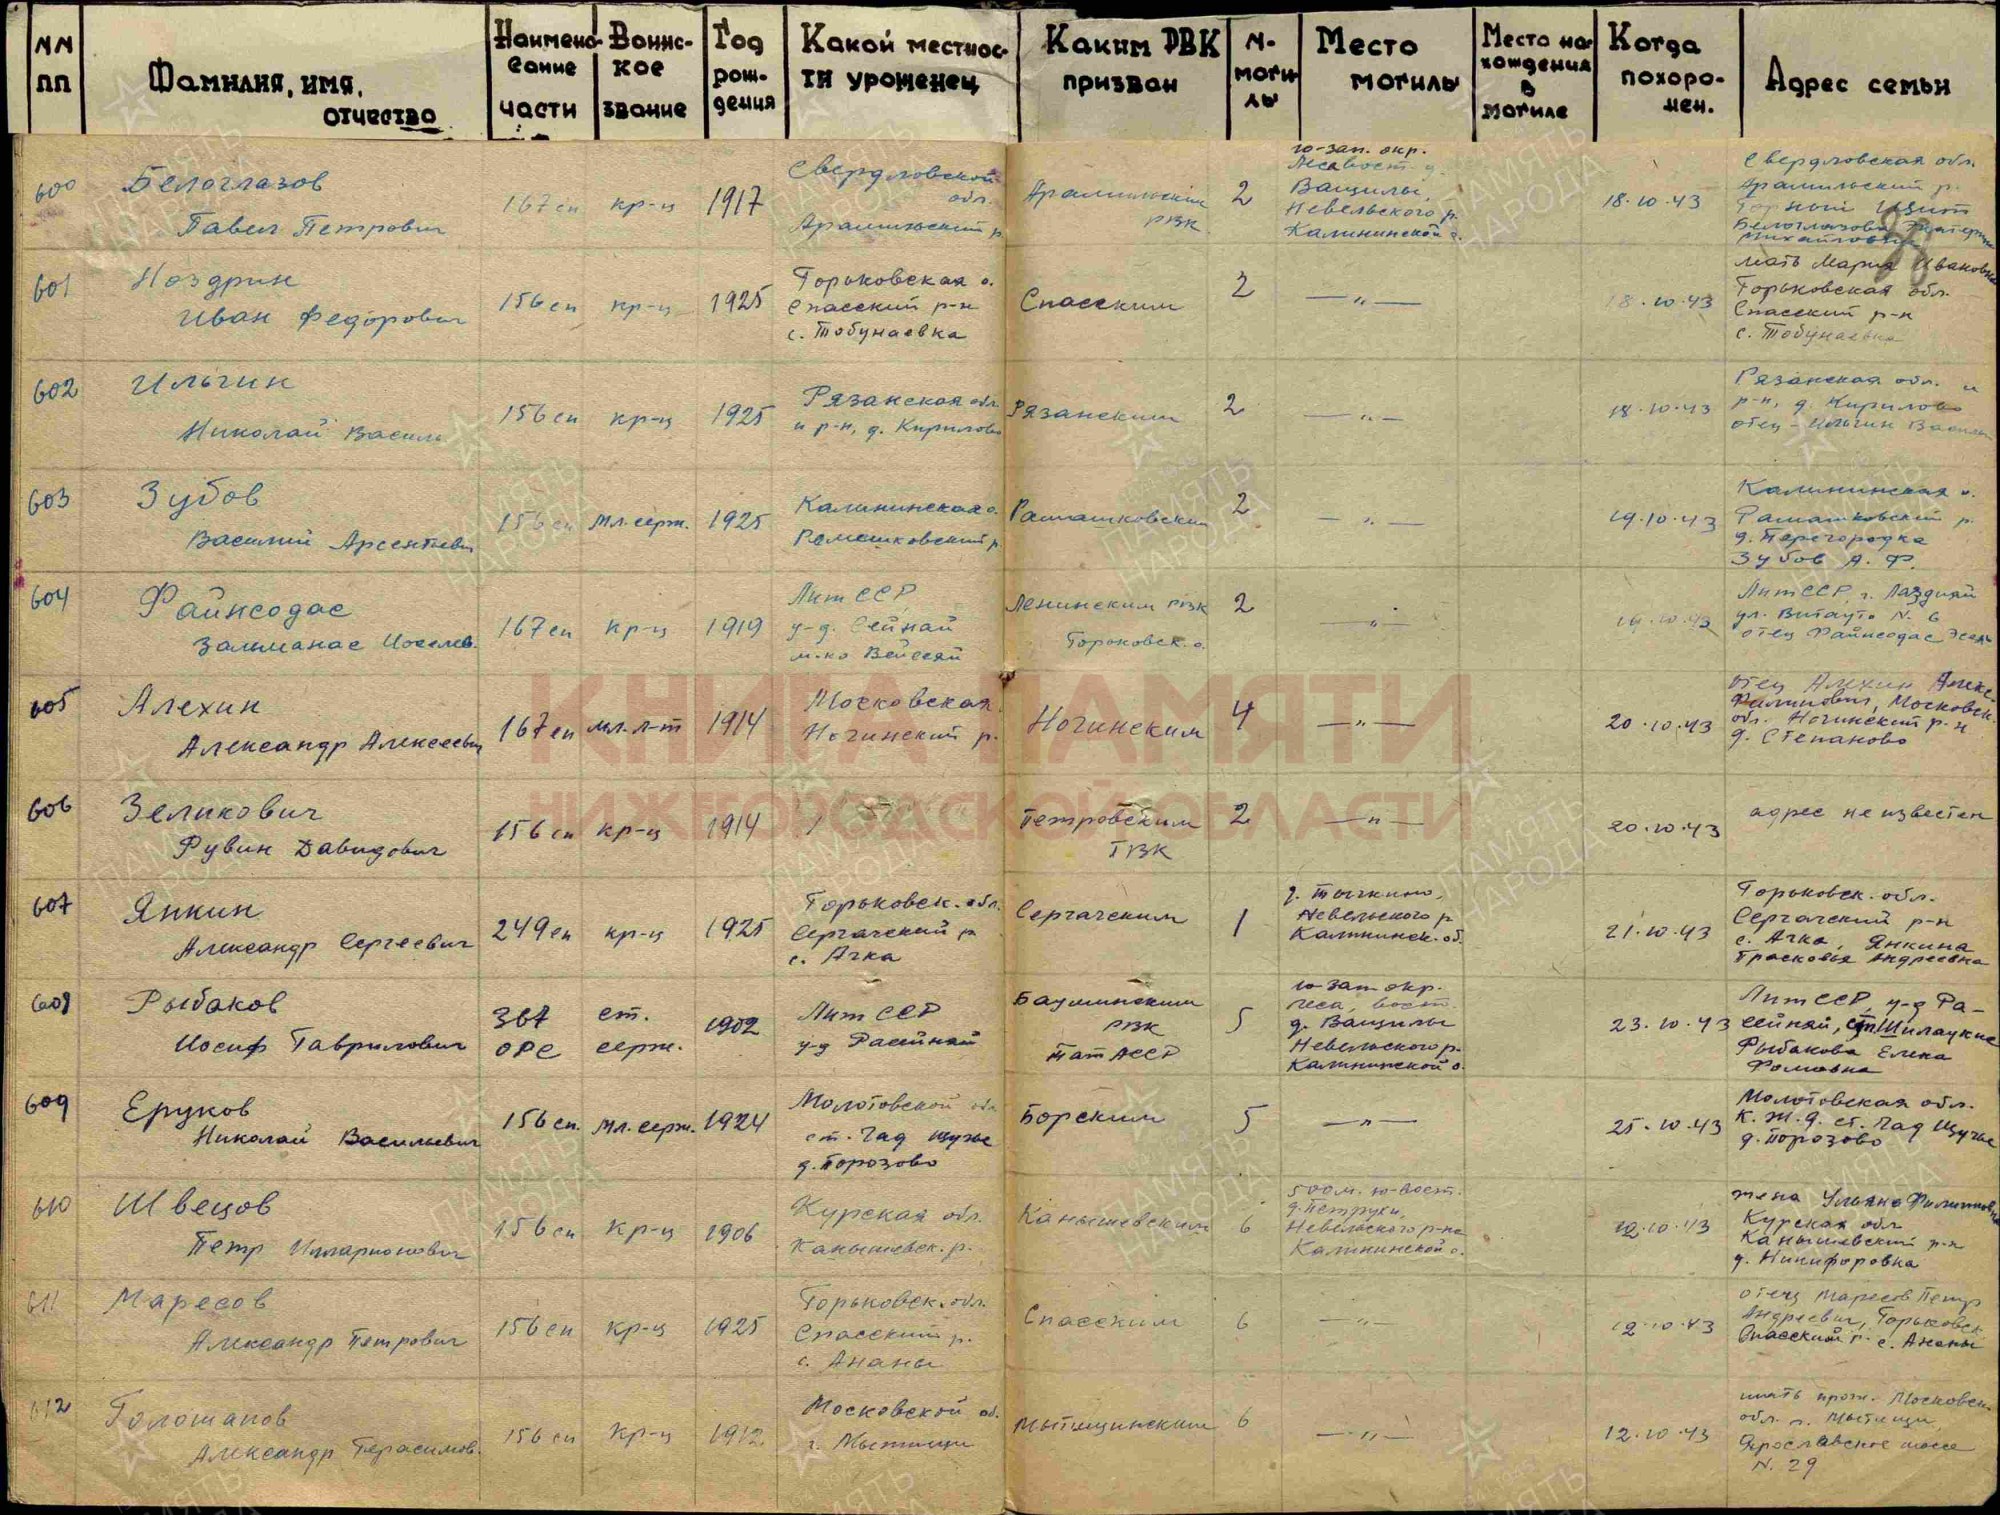 NN пп
Фамилия, имя, отчество
Наименование части
Воинское звание
Год рождения
Какой местности уроженец
Каким РВК призван
N- могилы
Место могилы
Место нахождения в могиле
Когда похоронен.
Адрес семьи
600
Белоглазов
Павел Петрович
167 сп
кр-ц
1917
Свердловской
обл.
Арамильский р.
Арамильским
РВК
2
ю-зап. окр.
леса вост. д.
Ващилы,
Невельского р.
Калининской о.
18.10.43
Свердловская обл.
Арамильский р.
Горный Щит
Белоглазова Екатерина
Михайловна
601
Ноздрин
Иван Федорович
156 сп
кр-ц
1925
Горьковская о.
Спасский р-н
с. Тобунаевка
Спасским
2
— „ —
18.10.43
мать Мария Ивановна
Горьковская обл.
Спасский р-н
с. Тобунаевка
602
Ильгин
Николай Василь
156 сп
кр-ц
1925
Рязанская обл.
и р-н, д. Кирилово
Рязанским
2
— „ —
18.10.43
Рязанская обл. и
р-н, д. Кирилово
отец – Ильгин Василь
603
Зубов
Василий Арсентьевич
156 сп
мл. серж.
1925
Калининская о.
Рамешковский р.
Рамашковским
2
— „ —
19.10.43
Калининская о.
Рамашковский р.
д. Перегородка
Зубов А. Ф.
604
Файнсодас
Залманас Иоселев.
167 сп
кр-ц
1919
Лит ССР
у-д. Сейнай
м-ко Вейсеяй
Ленинским РВК
Горьковск. о.
2
— „ —
19.10.43
Лит ССР, г. Лаздияй
ул. Витауто N. 6
отец Файнсодас
605
Алехин
Александр Алексеевич
167 сп
мл. л-т
1914
Московская
Ногинский р.
Ногинским
4
— „ —
20.10.43
отец Алехин Алекс-
Филипович, Московск.
обл. Ногинский р-н
д. Степаново
606
Зеликович
Рувин Давидович
156 сп
кр-ц
1914
Петровским
ГВК
2
— „ —
20.10.43
адрес не известен
607
Янкин
Александр Сергеевич
249 сп
кр-ц
1925
Горьковск. обл.
Сергачский р.
с. Ачка
Сергачским
1
д. Тычкино,
Невельского р.
Калининск. об.
21.10.43
Горьковск. обл.
Сергачский р-н
с. Ачка, Янкина
Прасковья Андреевна
608
Рыбаков
Иосиф Гаврилович
367
ОРС
ст.
серж.
1902
Лит ССР
у-д Расейнай
Бауминским
РВК
Тат АССР
5
ю-зап окр.
леса, вост.
д. Ващилы
Невельского р.
Калининской о.
23.10.43
Лит ССР, у-д Ра-
сейняй,
Рыбакова Елена
Фомовна
609
Еруков
Николай Васильевич
156 сп.
мл. серж.
1924
Молотовской обл.
ст. Чад Щучье
д. Порозово
Борским
5
— „ —
25.10.43
Молотовская обл.
К. Ж. д. ст. Чад Щучье
д. Порозово
610
Швецов
Петр Илларионович
156 сп
кр-ц
1906
Курская обл.
Канышевск. р.
Канышевским
6
500 м. ю-вост.
д. Петрухи,
Невельского р-на
Калининской о.
12.10.43
жена Ульяна Филипповна
Курская обл
Канышевский р-н
д. Никифоровка
611
Маресов
Александр Петрович
156 сп
кр-ц
1925
Горьковск. обл.
Спасский р.
с. Ананы
Спасским
6
— „ —
12.10.43
отец Маресов Петр
Андреевич, Горьковск.
Спасский р. с. Ананы
612
Голошапов
Александр Герасимов.
156 сп
кр-ц
1912
Московской об.
г. Мытищи
Мытищинским
6
— „ —
12.10.43
мать прож. Московск.
обл. г. Мытищи
Ярославское шоссе
N. 29
КНИГА ПАМЯТИ
НИЖЕГОРОДСКОЙ ОБЛАСТИ
ПАМЯТЬ НАРОДА